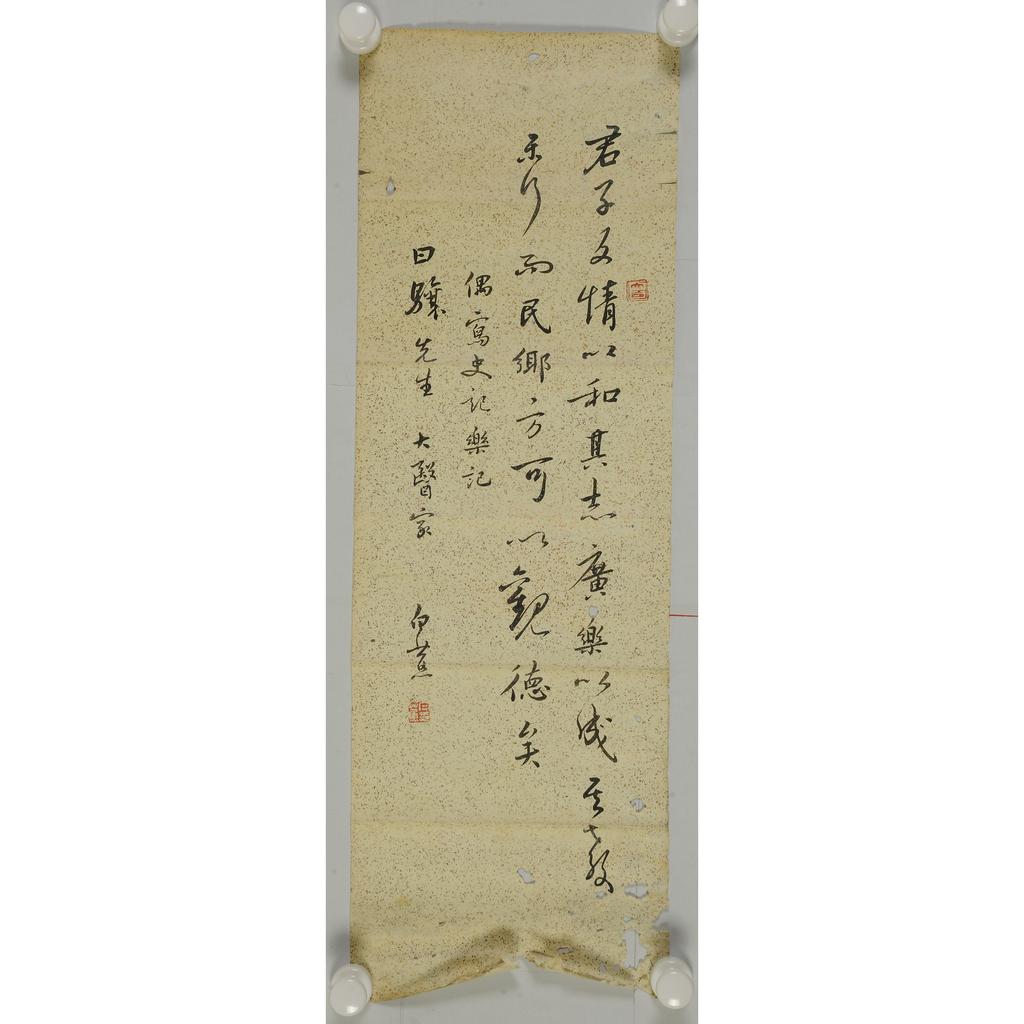 君子反情以和其志廣樂以成其教
樂行而民鄉方可以觀德矣
偶寫史記樂記
日驤先生 大醫家 白蕉